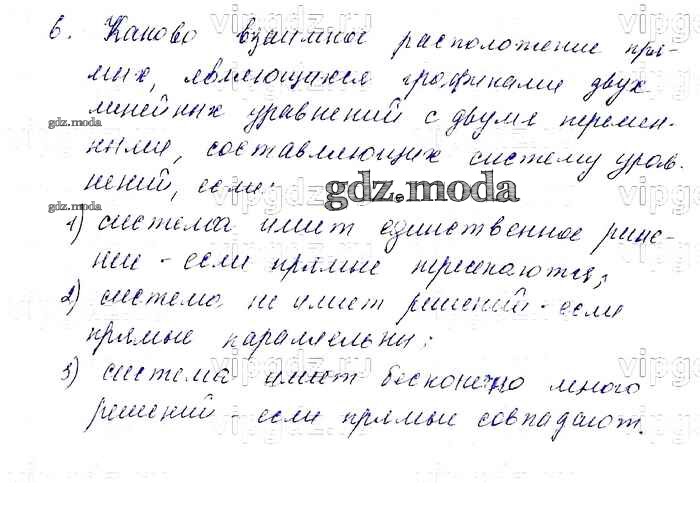 6. Каково взаимное расположение пря-
мых, являющихся графиками двух
линейных уравнений с двумя перемен-
ными, составляющих систему урав-
нений, если:
1) система имеет единственное реше-
ние - если прямые пересекаются;
2) система не имеет решений - если
прямые параллельны;
3) система имеет бесконечно много
решений - если прямые совпадают.
gdz.moda
gdz.moda
gdz.moda
gdz.moda
vipgdz.ru
vipgdz.ru
vipgdz.ru
vipgdz.ru